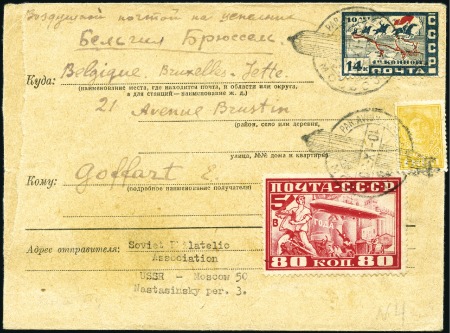 Воздушной почтой на цепелине
Бельгия Брюссель
Куда: Belgique Bruxelles-Jette
(наименование места, где находится почта, и области или округа,
а для станций — наименование ж. д.)
21 Avenue Brustin
(район, село или деревня,
улица, №№ дома и квартиры)
Кому: Goffart E.
(подробное наименование получателя)
Адрес отправителя: Soviet Filatelic
Association
USSR - Moscow 50
Nastasinsky per. 3.
14 К.
ПОЧТА
СССР
ПОЧТА-СССР
5 В 4
80 КОП 80
№ 4